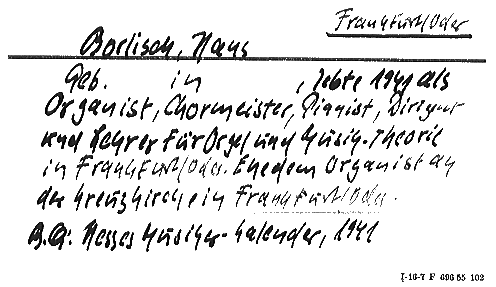 Frankfurt/Oder
Borlisch, Hans
Geb. in , lebte 1941 als
Organist, Chormeister, Pianist, Dirigent
und Lehrer für Orgel und Musik-Theorie
in Frankfurt/Oder. Ehedem Organist an
der Kreuzkirche in Frankfurt/Oder.
B.Q: Hesses Musiker-Kalender, 1941
I-16-7 F 696 55 102